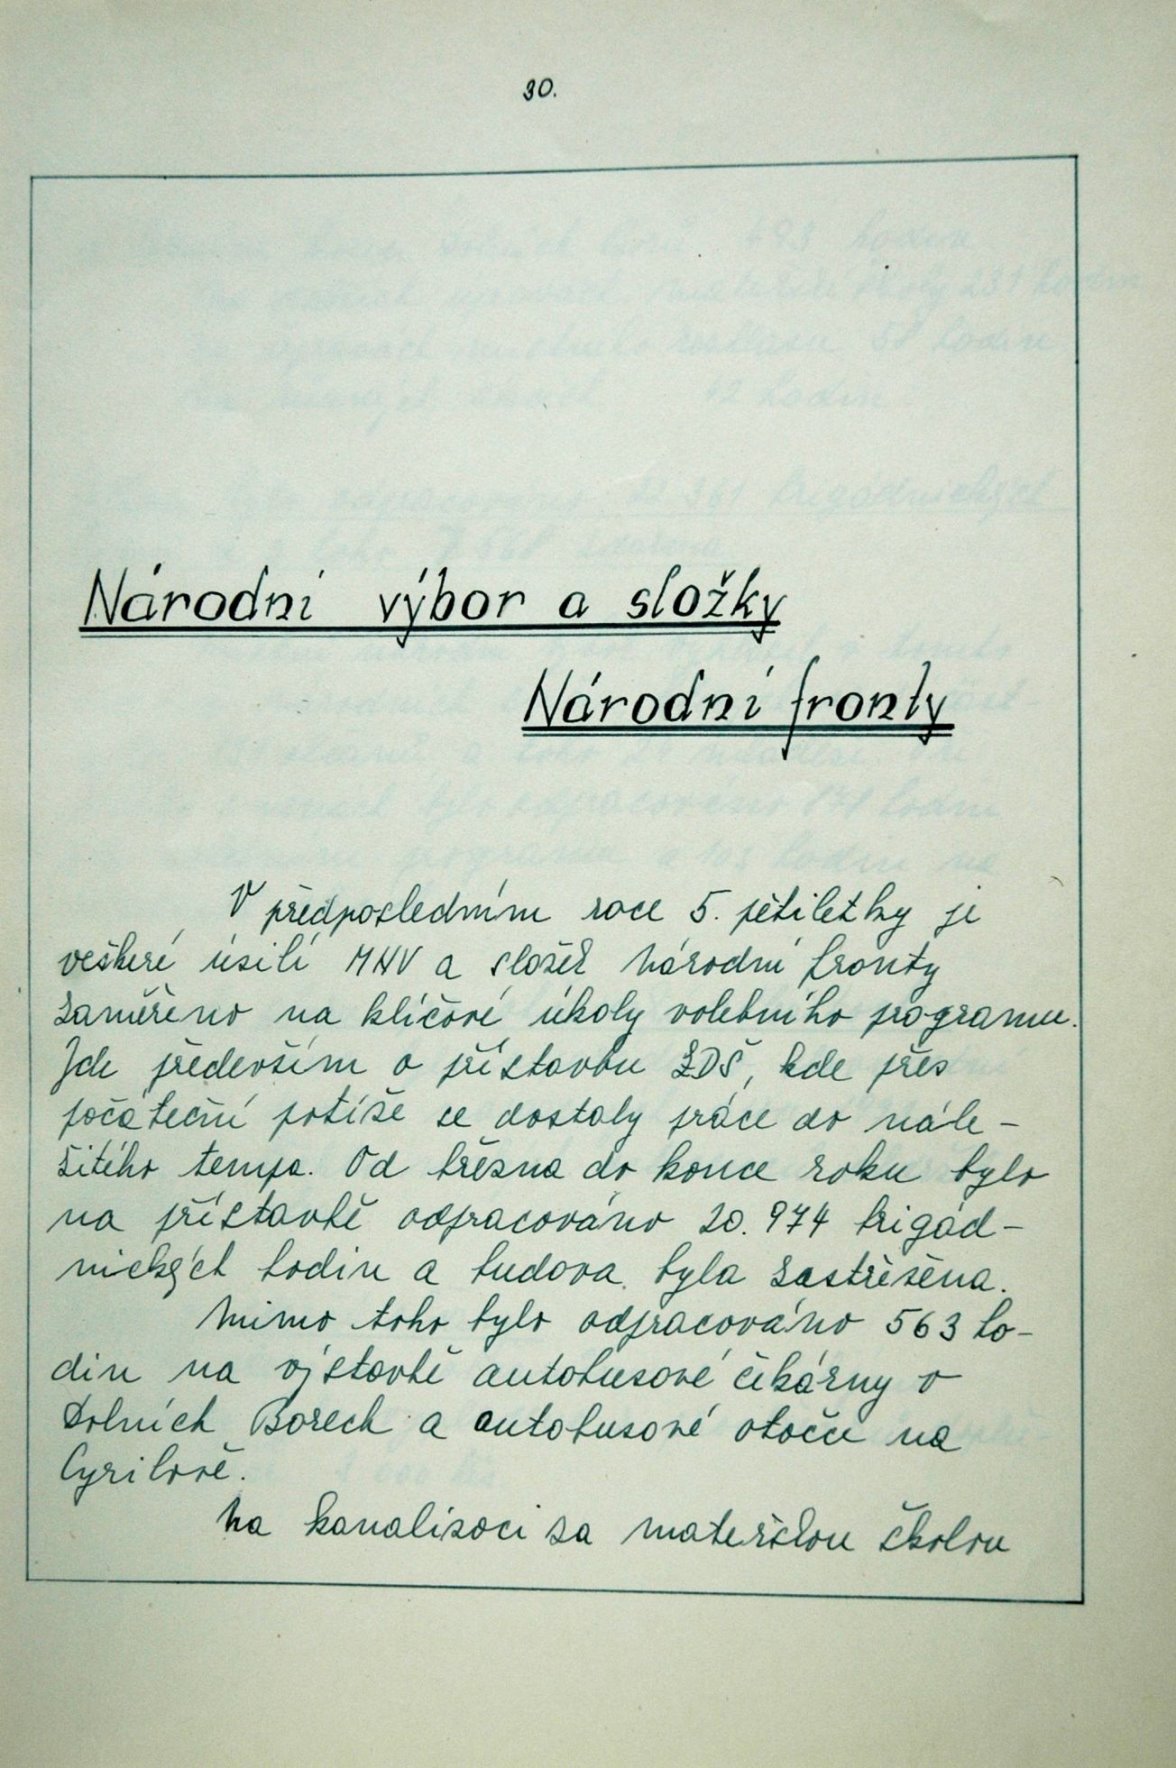 30.
Národní výbor a složky
Národní fronty
V předposledním roce 5. pětiletky je
veškeré úsilí MNV a složek Národní fronty
zaměřeno na klíčové úkoly volebního programu.
Jde především o přístavbu ZDŠ, kde přes
počáteční potíže se dostaly práce do nále-
žitého tempa. Od března do konce roku bylo
na přístavbě odpracováno 20.974 brigád-
nických hodin a budova byla zastřešena.
Mimo toho bylo odpracováno 563 ho-
din na výstavbě autobusové čekárny v
Dolních Borech a autobusové otočce na
Cyrilově.
Na kanalizaci za mateřskou školou